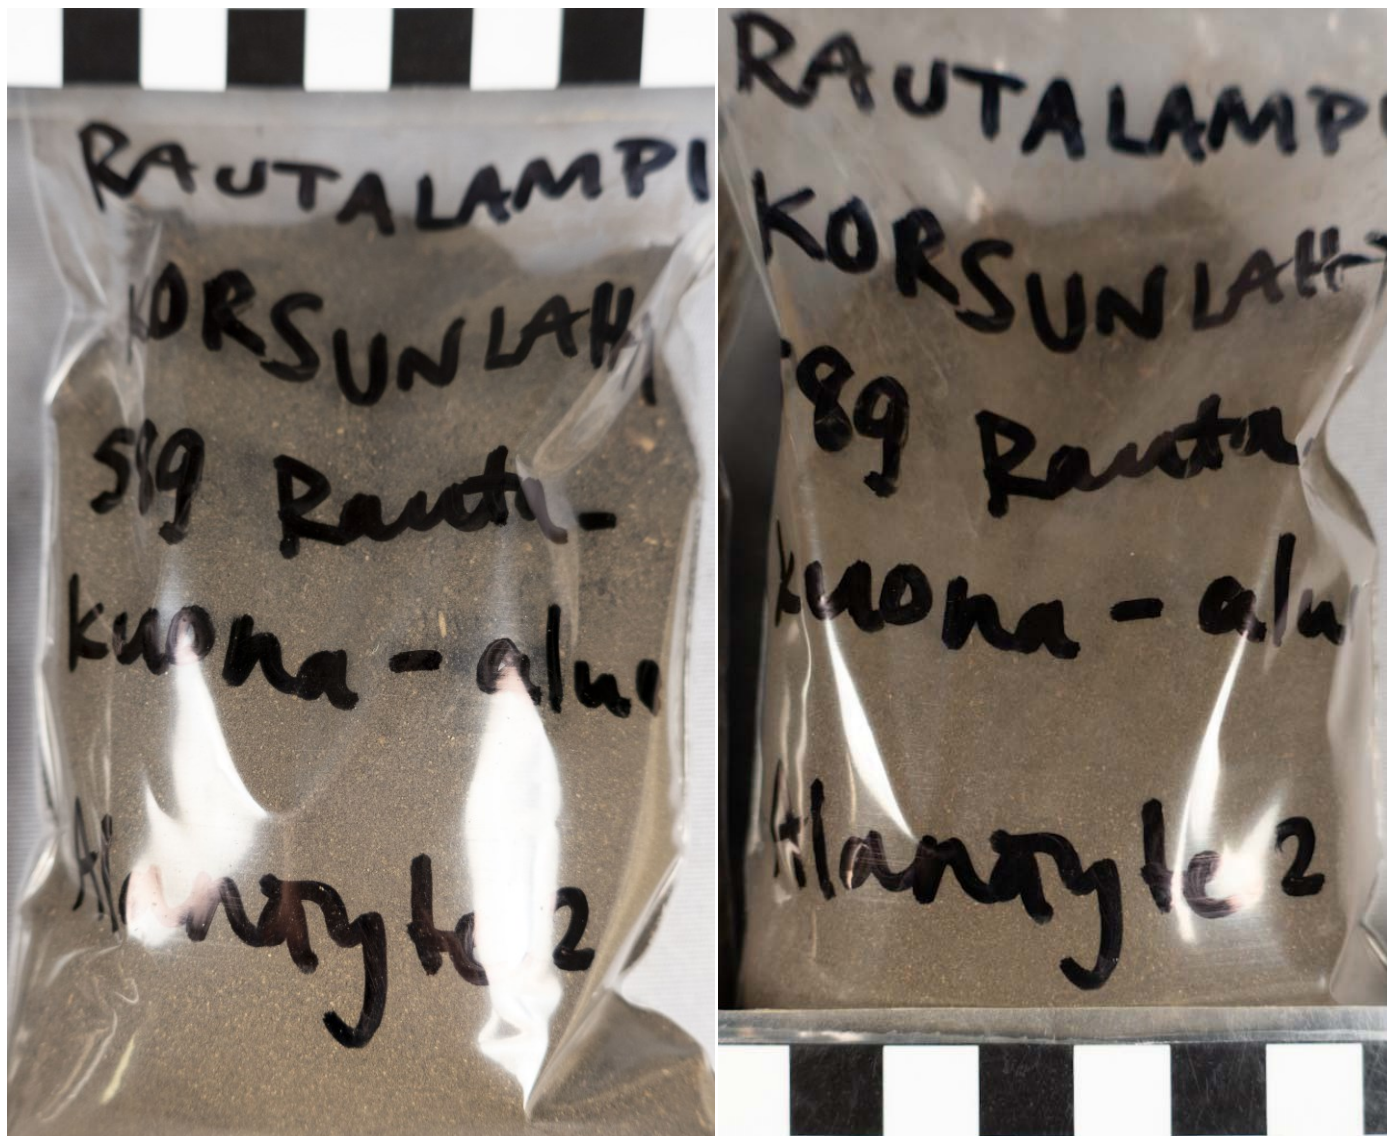 RAUTALAMPI
KORSUNLAHT
589 Rauta-
kuona-alu
Alanäyte 2
RAUTALAMPI
KORSUNLAHT
589 Rauta
kuona-alu
Alanäyte 2